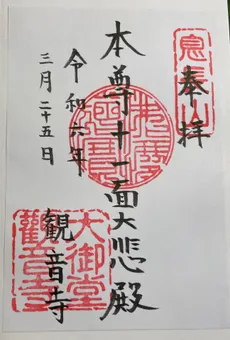 奉拝
息長山
本尊十一面大悲殿
令和六年
三月二十五日
観音寺
大御堂
観音寺